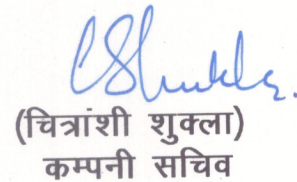 CShukla.
(चित्रांशी शुक्ला)
कम्पनी सचिव